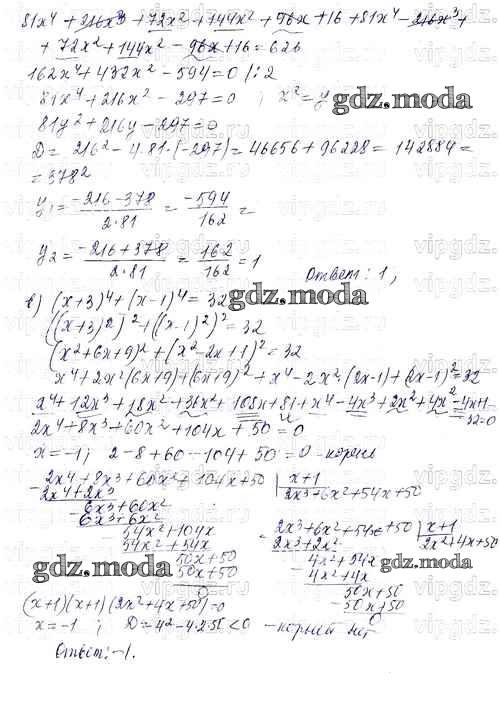 81x⁴ + 216x³ + 72x² + 144x² + 96x + 16 + 81x⁴ - 216x³ +
+ 72x² + 144x² - 96x + 16 = 626
162x⁴ + 432x² - 594 = 0 /:2
81x⁴ + 216x² - 297 = 0 ; x² = y
gdz.moda
81y² + 216y - 297 = 0
D = 216² - 4·81·(-297) = 46656 + 96228 = 142884 =
= 378²
y₁ = (-216-378)/(2·81) = -594/162 =
y₂ = (-216+378)/(2·81) = 162/162 = 1
Ответ: 1,
в) (x+3)⁴ + (x-1)⁴ = 32
gdz.moda
((x+3)²)² + ((x-1)²)² = 32
(x²+6x+9)² + (x²-2x+1)² = 32
x⁴ + 2x²(6x+9) + (6x+9)² + x⁴ - 2x²·(2x-1) + (2x-1)² = 32
x⁴ + 12x³ + 18x² + 36x² + 108x + 81 + x⁴ - 4x³ + 2x² + 4x² - 4x + 1
- 32 = 0
2x⁴ + 8x³ + 60x² + 104x + 50 = 0
x = -1; 2 - 8 + 60 - 104 + 50 = 0 - корень
2x⁴ + 8x³ + 60x² + 104x + 50 | x+1
- 2x⁴ + 2x³ 2x³ + 6x² + 54x + 50
6x³ + 60x²
- 6x³ + 6x²
54x² + 104x
- 54x² + 54x
50x + 50
- 50x + 50
0
2x³ + 6x² + 54x + 50 | x+1
- 2x³ + 2x² 2x² + 4x + 50
4x² + 54x
- 4x² + 4x
50x + 50
- 50x + 50
0
gdz.moda
gdz.moda
(x+1)(x+1)(2x² + 4x + 50) = 0
x = -1 ; D = 4² - 4·2·50 < 0 - корней нет
Ответ: -1.
vipgdz.ru